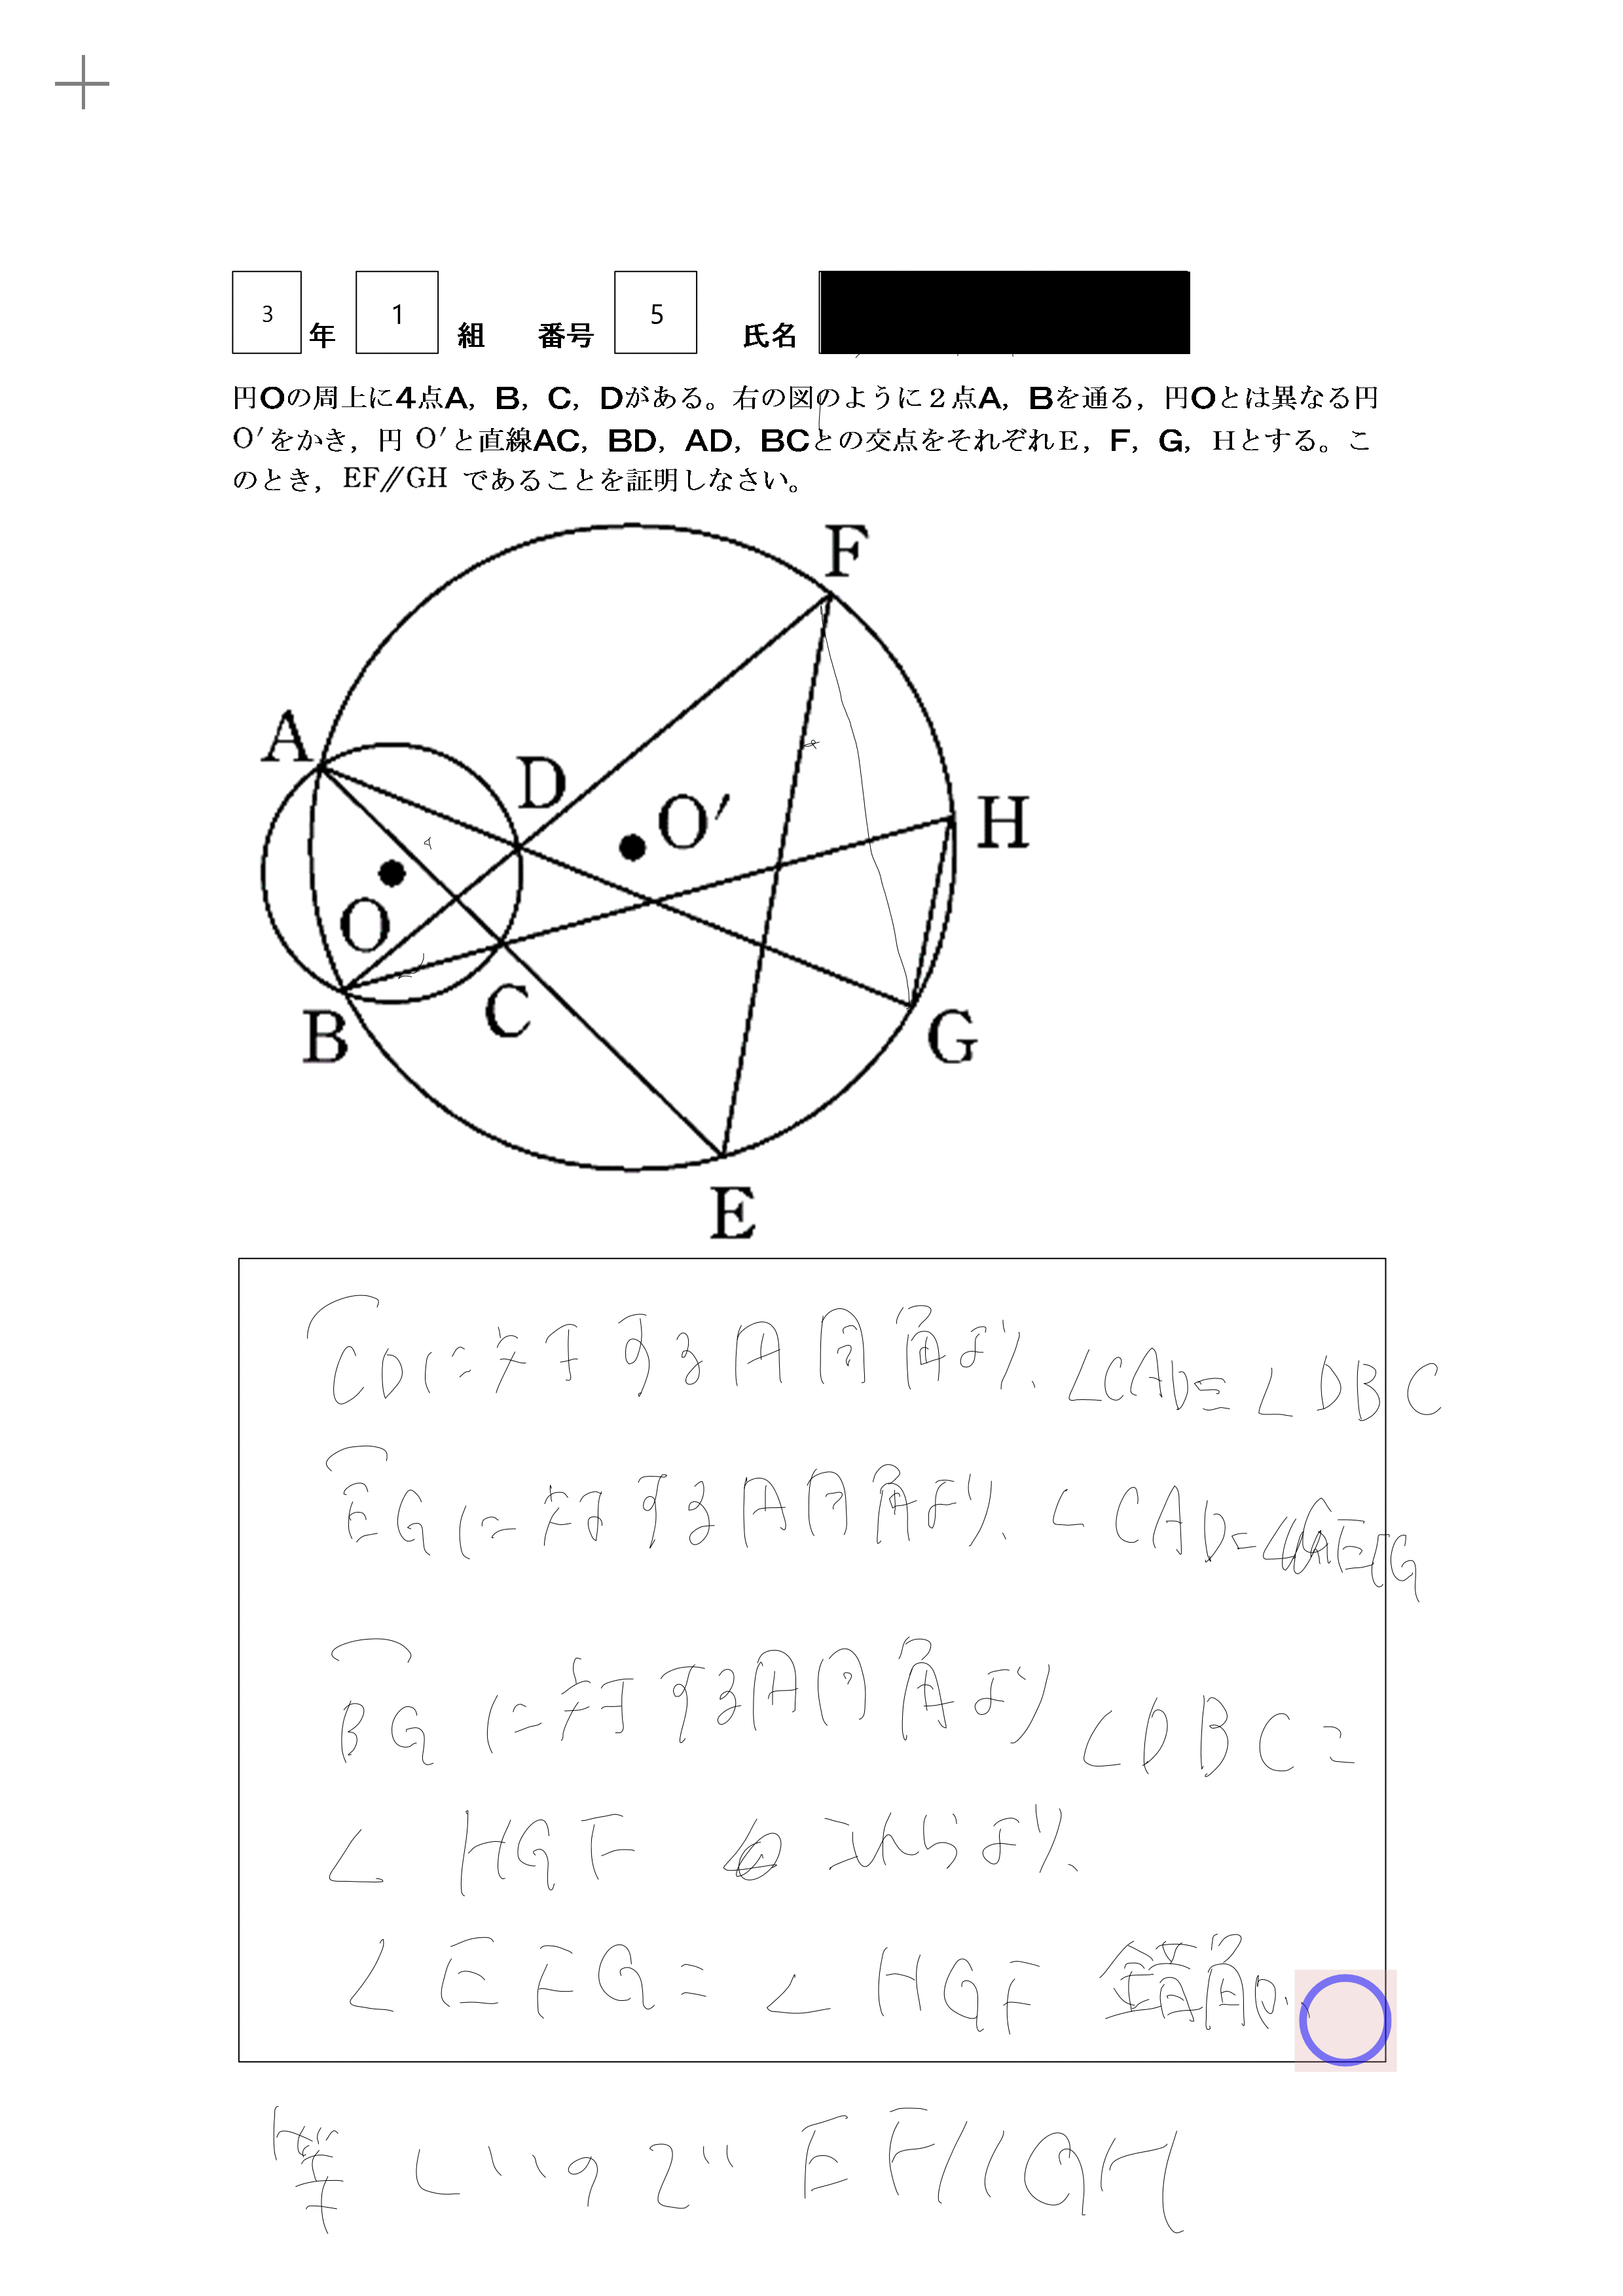 3 年 1 組 番号 5 氏名
円Oの周上に4点A，B，C，Dがある。右の図のように２点A，Bを通る，円Oとは異なる円
O′をかき，円 O′と直線AC，BD，AD，BCとの交点をそれぞれE，F，G，Hとする。こ
のとき，EF⫽GH であることを証明しなさい。
F
A
D
O′
H
O
B
C
G
E
CDに対する円周角より、∠CAD=∠DBC
EGに対する円周角より、∠CAD=∠EFG
BGに対する円周角より ∠DBC=
∠HGF これらより、
∠EFG=∠HGF 錯角が
等しいので EF//GH